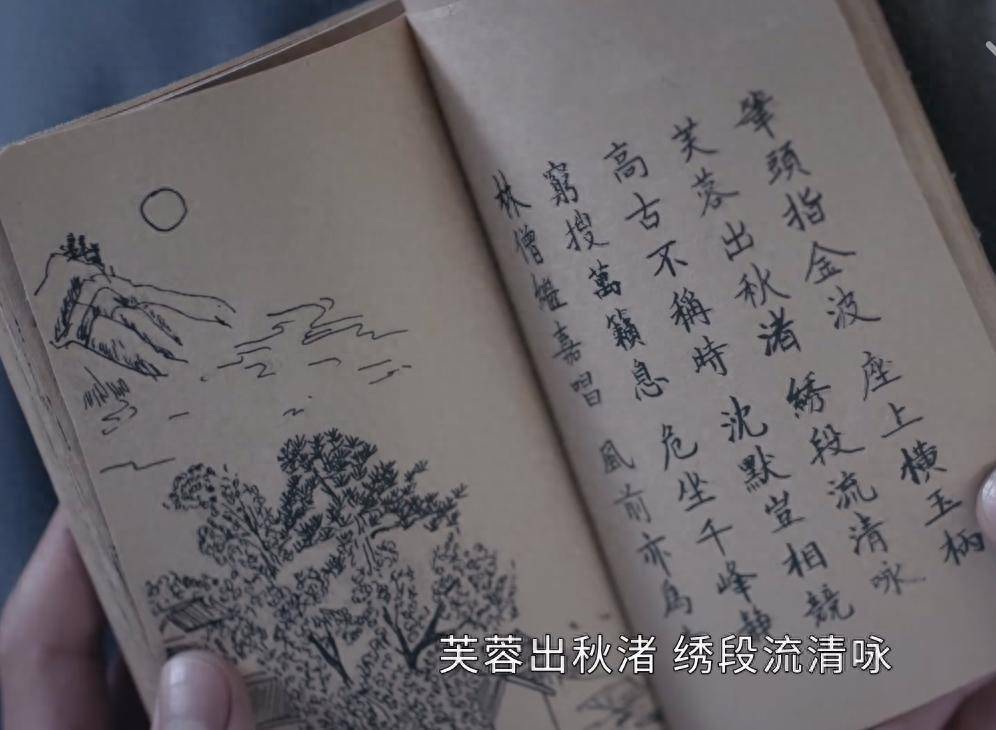 峯頭指金波 座上橫玉柄
芙蓉出秋渚 綉段流清咏
高古不稱時 沈默豈相競
窮搜萬籟息 危坐千峰
林僧繼嘉唱 風前亦為
芙蓉出秋渚 绣段流清咏